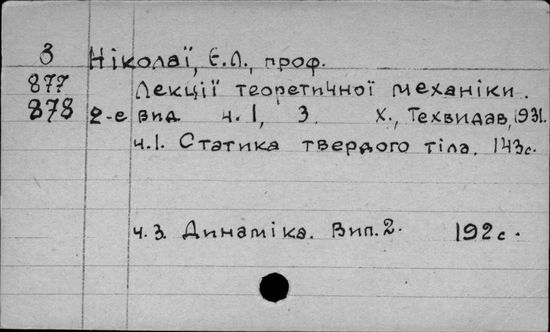 3 Ніколаї, Є.Л., проф.
877 Лекції теоретичної механіки.
878 2-е вид. ч. 1, 3. Х., Техвидав, 1931.
ч.1. Статика твердого тіла. 143с.
ч.3. Динаміка. Вип.2. 192с.